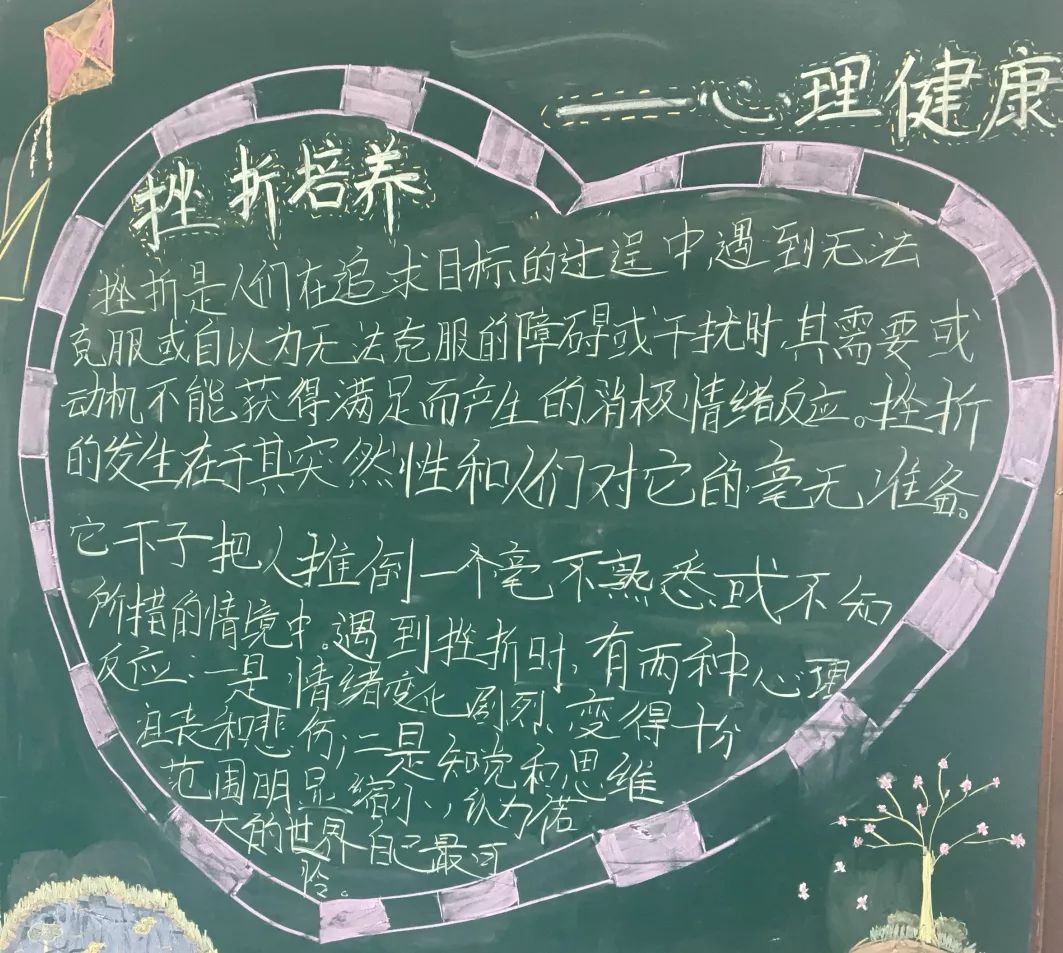 ——心理健康
挫折培养
挫折是人们在追求目标的过程中,遇到无法
克服或自以为无法克服的障碍或干扰时,其需要或
动机不能获得满足而产生的消极情绪反应。挫折
的发生在于其突然性和人们对它的毫无准备。
它下子把人推倒一个毫不熟悉或不知
所措的情境中。遇到挫折时,有两种心理
反应:一是,情绪变化剧烈,变得十分
沮丧和悲伤;二是知觉和思维
范围明显缩小,认为偌
大的世界自己最可
怜。